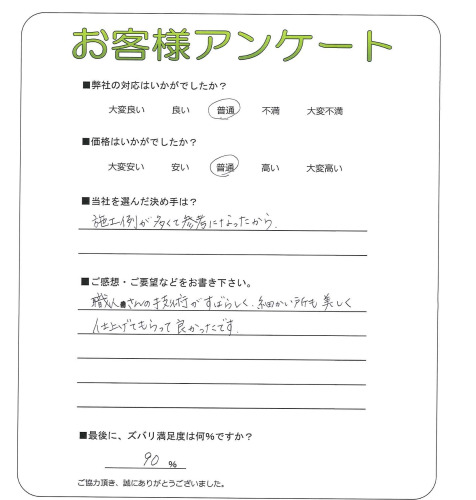 お客様アンケート
■弊社の対応はいかがでしたか？
大変良い 良い 普通 不満 大変不満
■価格はいかがでしたか？
大変安い 安い 普通 高い 大変高い
■当社を選んだ決め手は？
施工例が多くて参考になったから.
■ご感想・ご要望などをお書き下さい。
職人さんの技術がすばらしく、細かい所も美しく
仕上げてもらって良かったです.
■最後に、ズバリ満足度は何%ですか？
90 %
ご協力頂き、誠にありがとうございました。